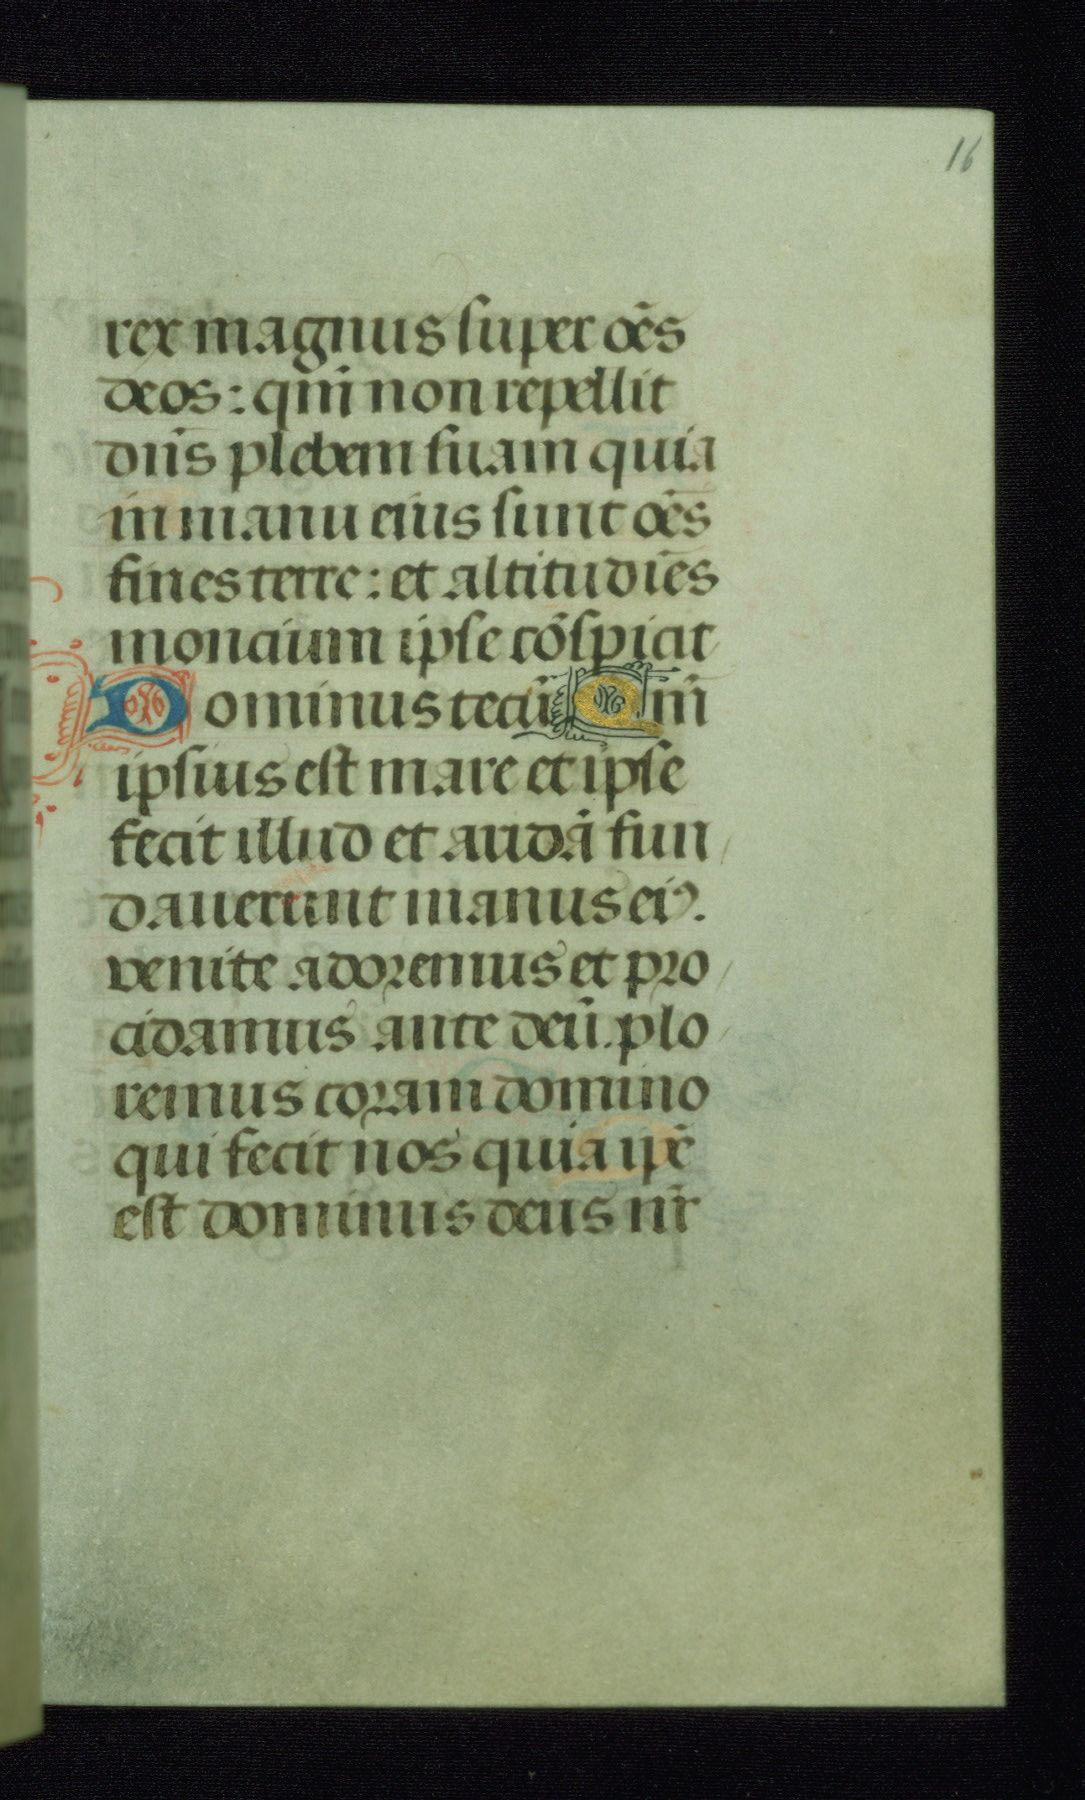 16
rex magnus super oēs
deos: qm̄ non repellit
dn̄s plebem suam quia
in manu eius sunt oēs
fines terre: et altitudīes
moncium ipse cōspicit
Dominus tecū Qm̄
ipsius est mare et ipse
fecit illud et aridā fun
dauerunt manus eiꝰ.
venite adoremus et pro
cidamus ante deū. plo
remus coram domino
qui fecit nos quia ip̄e
est dominus deus nr̄